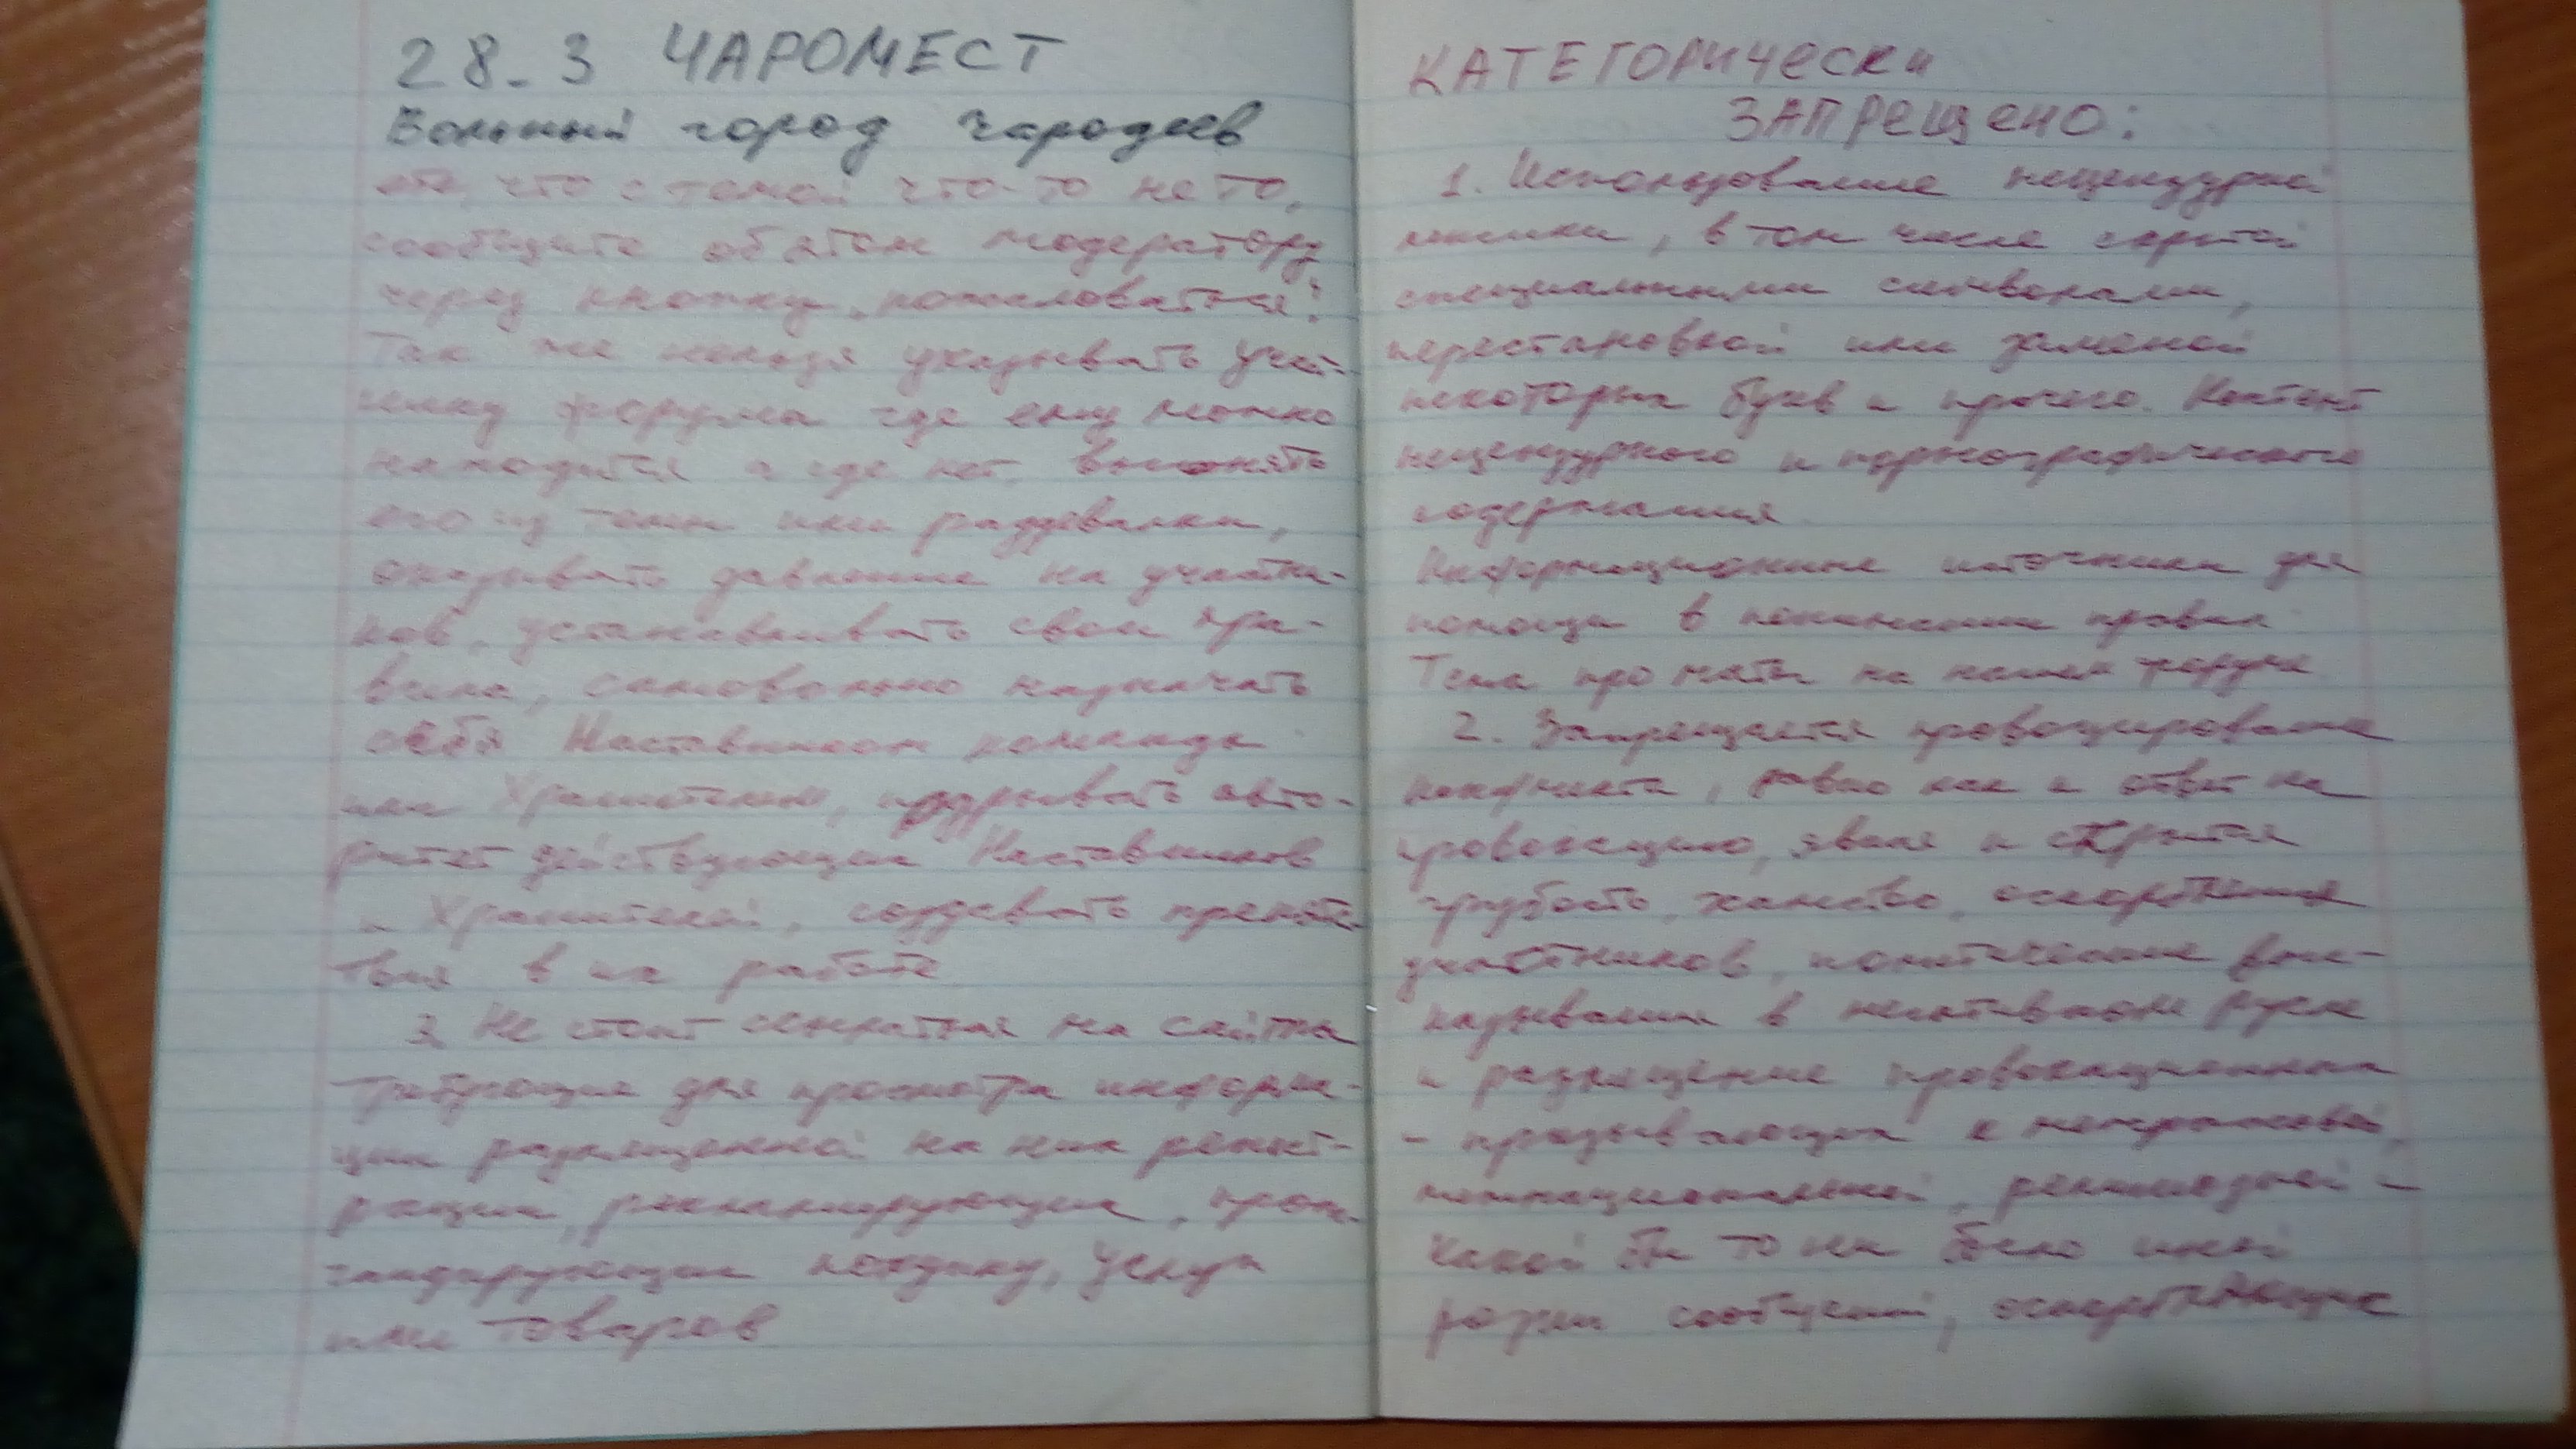 28_3 ЧАРОМЕСТ
Больный город чародеев
ете, что с темой что-то не то,
сообщите об этом модератору
через кнопку "пожаловаться".
Так же нельзя указывать учас-
нику форума где ему можно
находится а где нет, выгонять
его из темы или раздевалки,
оказывать давление на участни-
ков, устанавливать свои пра-
вила, самовольно назначать
себя Наставником команды
или Хранителем, подрывать авто-
ритет действующих Наставников
и Хранителей, создавать препятс-
твия в их работе
3 Не стоит ссылаться на сайты
требующие для просмотра информа-
ции размещенной на них регист-
рации, рекламирующие, пропа-
гандирующие покупку, услуг
или товаров
КАТЕГОРИЧЕСКИ
ЗАПРЕЩЕНО:
1. Использование нецензурной
лексики, в том числе скрытой
специальными символами,
перестановкой или заменой
некоторых букв и прочего. Контент
нецензурного и порнографического
содержания
Информационные источники для
помощи в понимании правил
Тема про маты на нашем форуме
2. Запрещается провоцирование
конфликта, равно как и ответ на
провокацию, явная и скрытая
грубость, хамство, оскорбления
участников, политические выс-
казывания в негативном русле
и размещение провокационных
- призывающих к межрасовой,
межнациональной, религиозной и
какой бы то ни было иной
розни сообщений, оскорбляющие